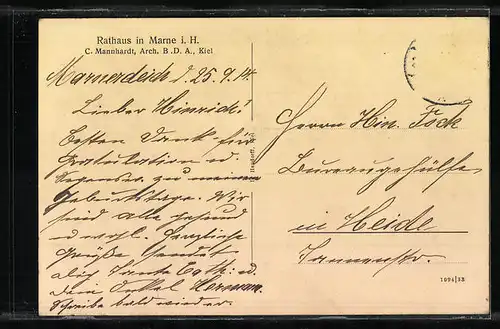 Rathaus in Marne i. H.
C. Mannhardt, Arch. B.D.A., Kiel
Marnerdeich d. 25. 9. 14.
Lieber Hinrich!
Besten Dank für
Gratulation u.
zu meinem
Geburtstage. Wir
sind alle gesund
u. vergl. Herzliche
Grüße sendet
Tante Cath. u.
Dein Onkel Hermann.
Schreibe bald wieder.
Herrn Hin.
Bureaugehülfe
in Heide
Tannenstr.
1094/13